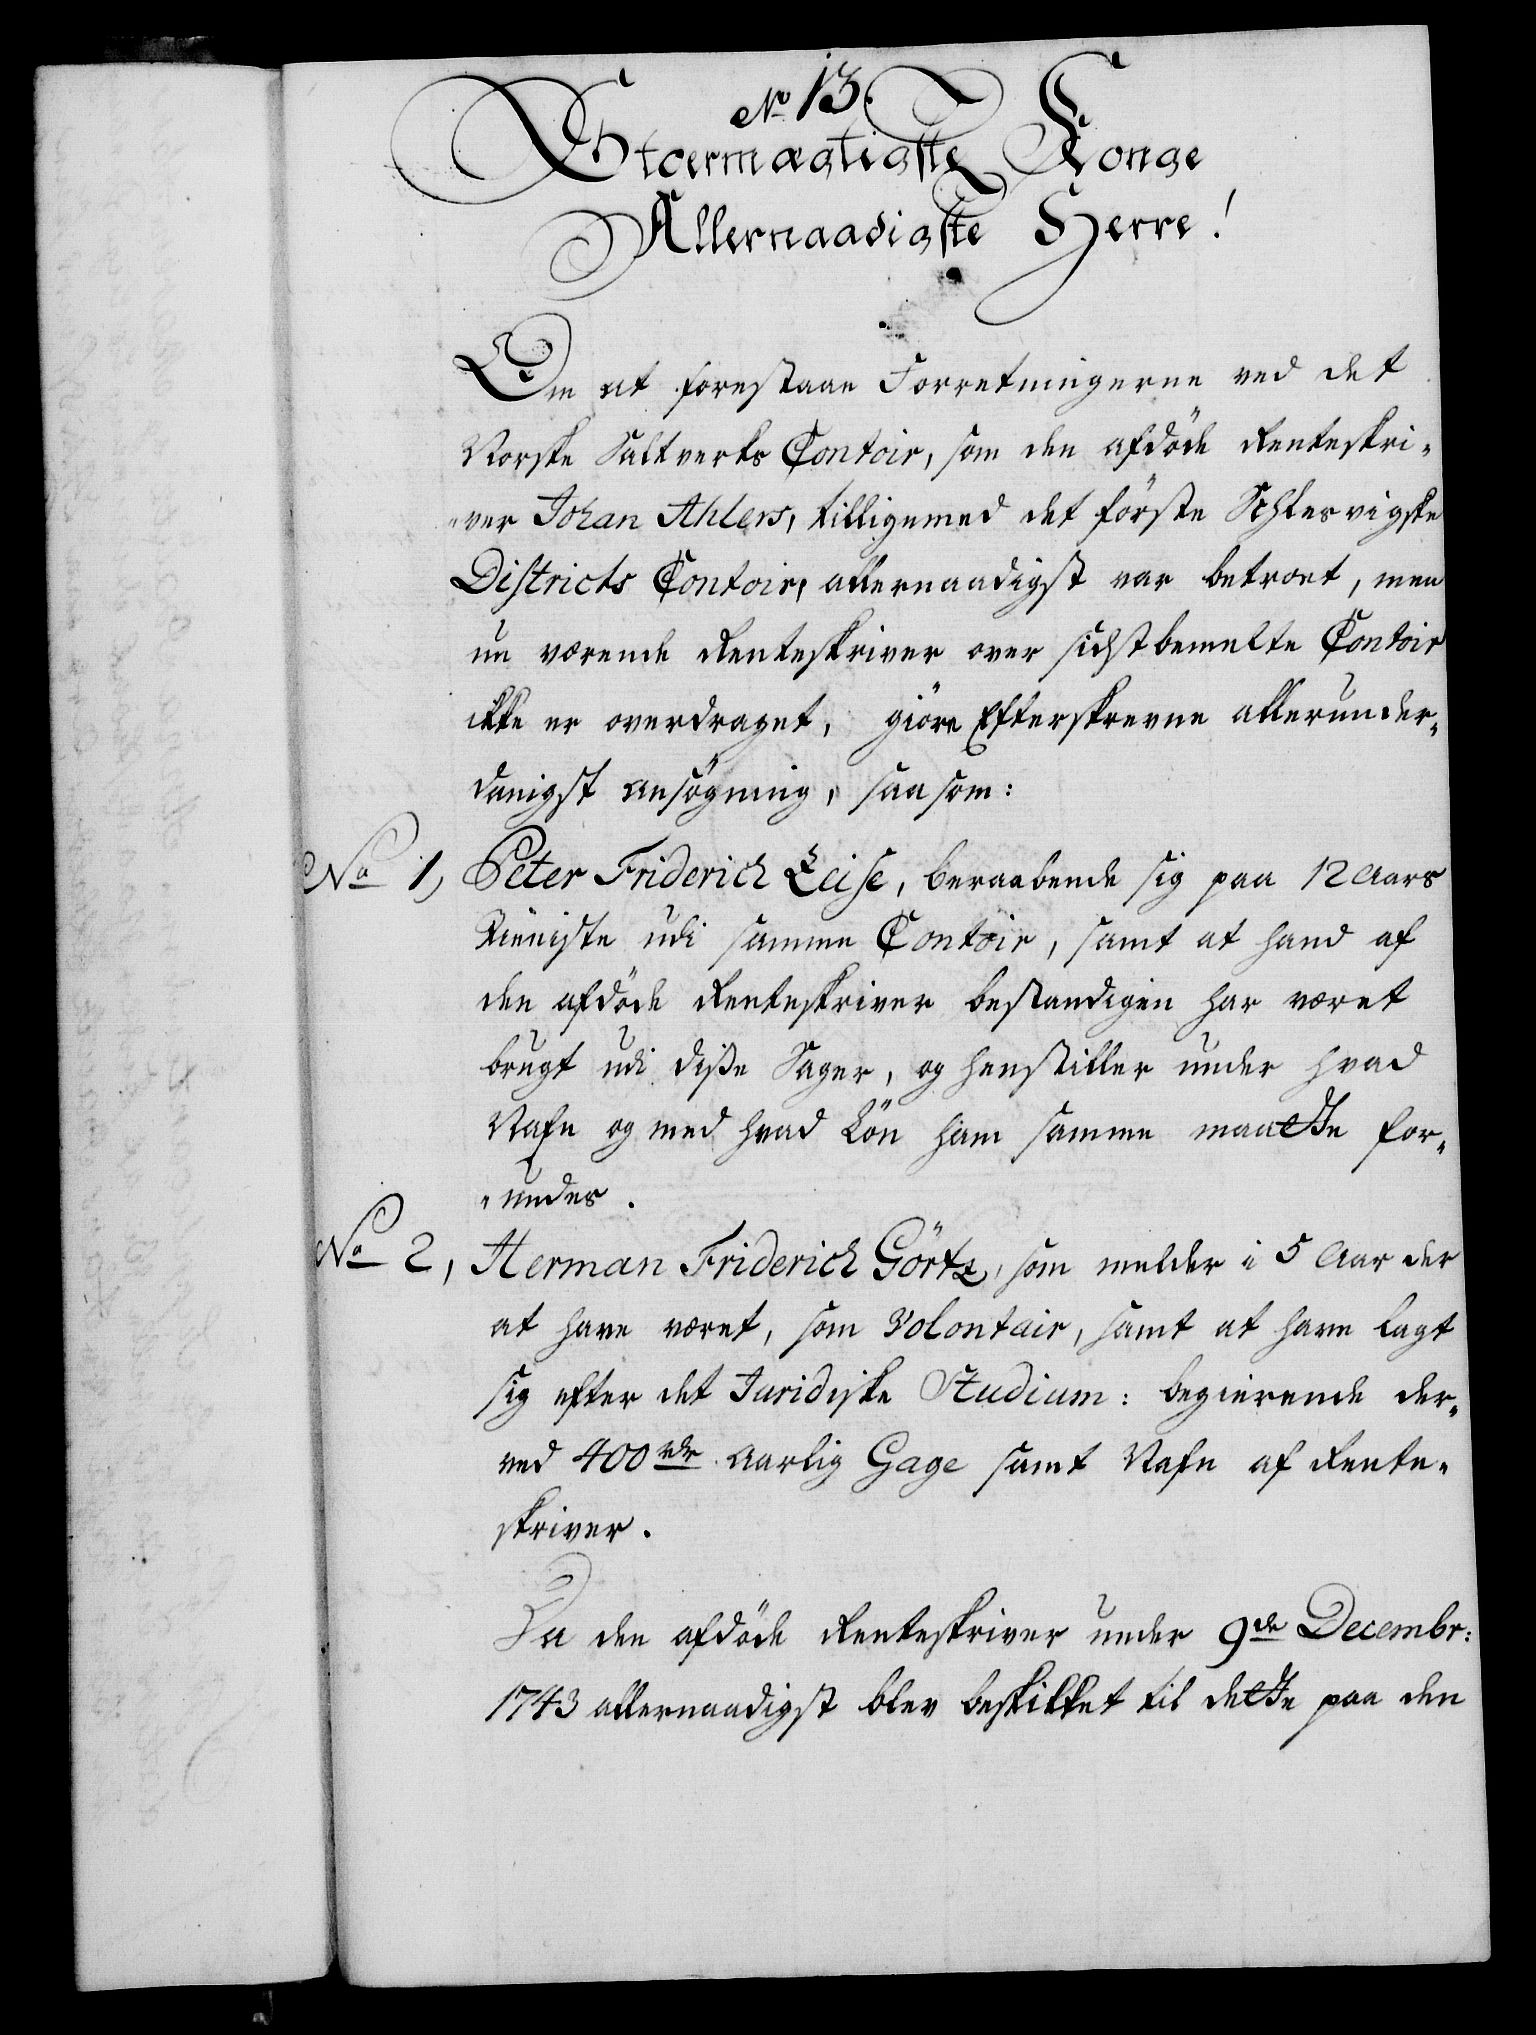 No 13.
Stormægtigste Konge
Allernaadigste Herre!
Om at forestaae Forretningerne ved det
Norske Saltverks Contoir, som den afdöde Renteskri-
-ver Johan Ahlers, tilligemed det förste Schlesvigske
Districts Contoir, allernaadigst var betroet, men
nu værende Renteskriver over sidstbemelte Contoir
ikke er overdraget, giöre Efterskrevne allerunder-
danigst ansögning, saasom:
No 1, Peter Friderich Leise, beraabende sig paa 12 Aars
Tieniste udi samme Contoir, samt at hand af
den afdöde Renteskriver bestandigen har været
brugt udi diße Sager, og henstiller under hvad
Nafn og med hvad Lön ham samme maatte for-
-undes.
No 2, Herman Friderich Görtz, som melder i 5 Aar der
at have været, som Volontair, samt at have lagt
sig efter det Juridiske Studium: begierende der-
ved 400 rdr aarlig Gage samt Nafn af Rente-
skriver.
Da den afdöde Renteskriver under 9de Decembr:
1743 allernaadigst blev beskikket til dette paa den